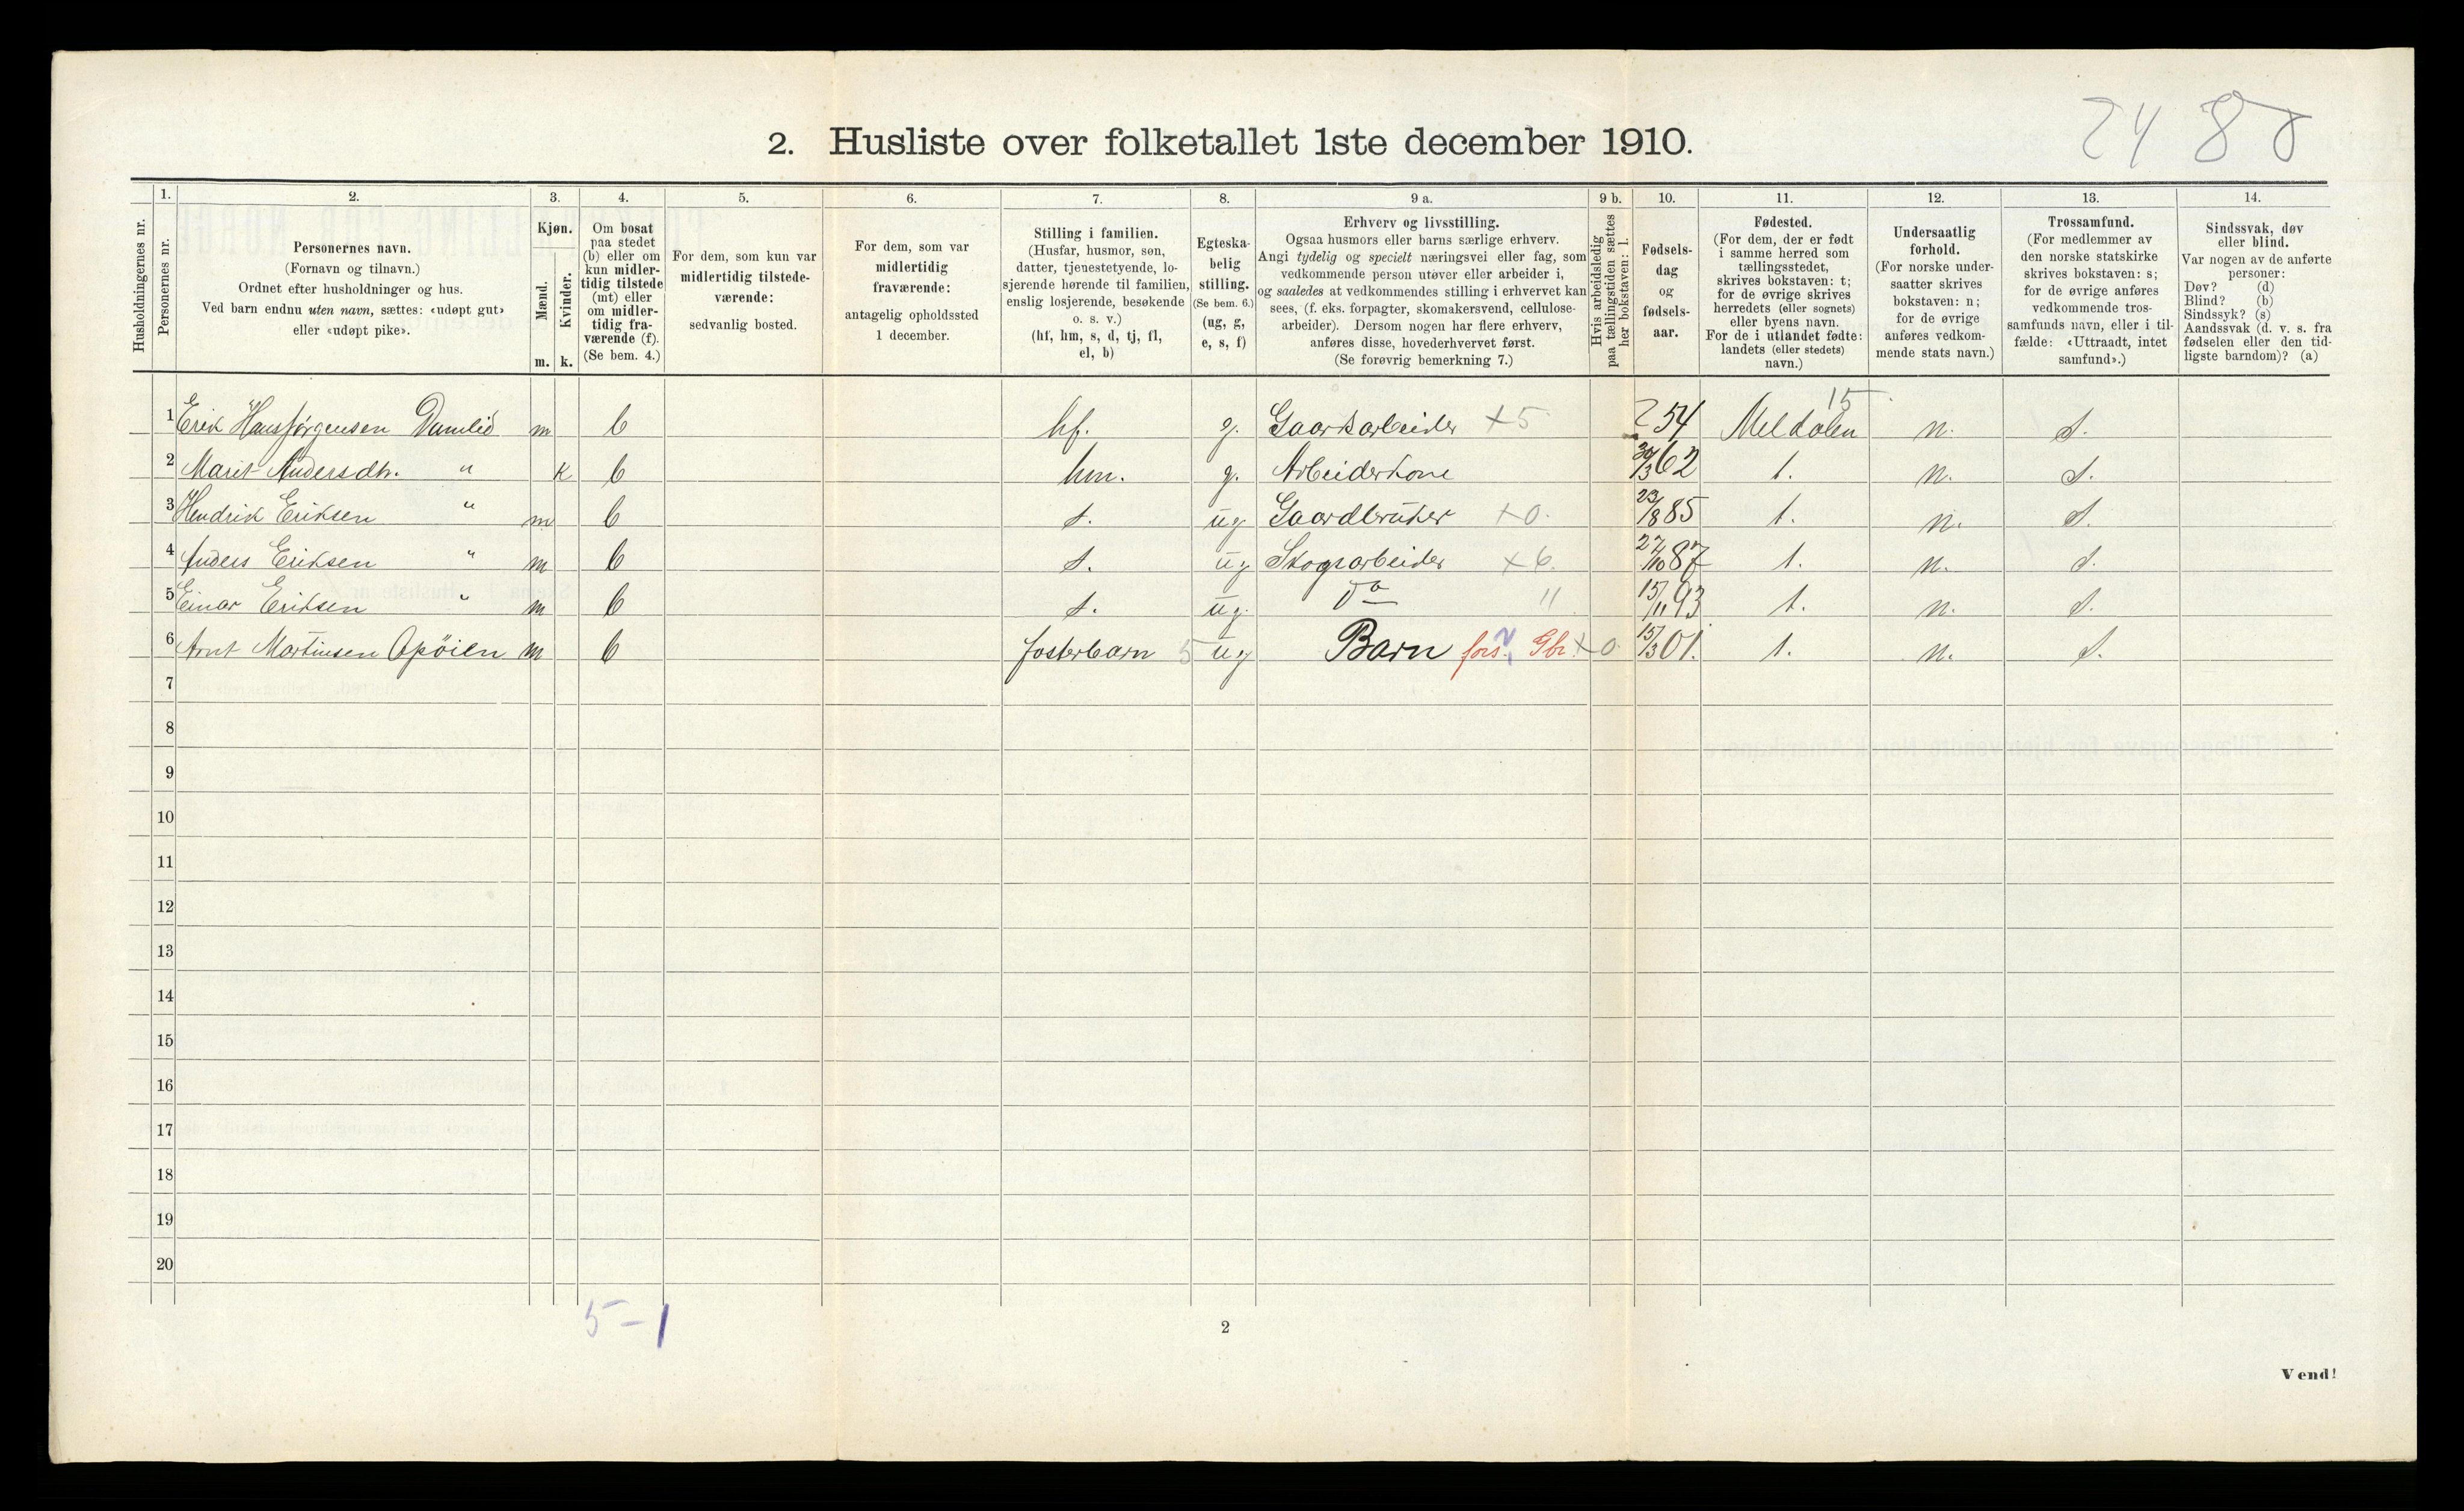 24 88
2. Husliste over folketallet 1ste december 1910.
Husholdningernes nr.
1. Personernes nr.
2. Personernes navn. (Fornavn og tilnavn.) Ordnet efter husholdninger og hus. Ved barn endnu uten navn, sættes: «udøpt gut» eller «udøpt pike».
3. Kjøn. Mænd. m. Kvinder. k.
4. Om bosat paa stedet (b) eller om kun midlertidig tilstede (mt) eller om midlertidig fraværende (f). (Se bem. 4.)
5. For dem, som kun var midlertidig tilstedeværende: sedvanlig bosted.
6. For dem, som var midlertidig fraværende: antagelig opholdssted 1 december.
7. Stilling i familien. (Husfar, husmor, søn, datter, tjenestetyende, losjerende hørende til familien, enslig losjerende, besøkende o. s. v.) (hf, hm, s, d, tj, fl, el, b)
8. Egteskabelig stilling. (Se bem. 6.) (ug, g, e, s, f)
9 a. Erhverv og livsstilling. Ogsaa husmors eller barns særlige erhverv. Angi tydelig og specielt næringsvei eller fag, som vedkommende person utøver eller arbeider i, og saaledes at vedkommendes stilling i erhvervet kan sees, (f. eks. forpagter, skomakersvend, cellulosearbeider). Dersom nogen har flere erhverv, anføres disse, hovederhvervet først. (Se forøvrig bemerkning 7.)
9 b. Hvis arbeidsledig paa tællingstiden sættes her bokstaven: l.
10. Fødselsdag og fødselsaar.
11. Fødested. (For dem, der er født i samme herred som tællingsstedet, skrives bokstaven: t; for de øvrige skrives herredets (eller sognets) eller byens navn. For de i utlandet fødte: landets (eller stedets) navn.)
12. Undersaatlig forhold. (For norske undersaatter skrives bokstaven: n; for de øvrige anføres vedkommende stats navn.)
13. Trossamfund. (For medlemmer av den norske statskirke skrives bokstaven: s; for de øvrige anføres vedkommende trossamfunds navn, eller i tilfælde: «Uttraadt, intet samfund».)
14. Sindssvak, døv eller blind. Var nogen av de anførte personer: Døv? (d) Blind? (b) Sindssyk? (s) Aandssvak (d. v. s. fra fødselen eller den tidligste barndom)? (a)
15
1 Erik Hansjørgensen Damlid m b hf. g. Gaardsarbeider +5 54 Meldalen n. s.
2 Marit Andersdtr. " k b hm. g. Arbeiderkone 30/3 62 t. n. s.
3 Hendrik Eriksen " m b s. ug Gaardbruker +0. 23/8 85 t. n. s.
4 Anders Eriksen " m b s. ug Skogsarbeider +6. 27/10 87 t. n. s.
5 Einar Eriksen " m b s. ug. do " 15/11 93 t. n. s.
6 Arnt Martinsen Apøien m b fosterbarn 5 ug Barn fors. Gbr. +0. 15/3 01. t. n. s.
7
8
9
10
11
12
13
14
15
16
17
18
19
20
5-1
2
Vend!